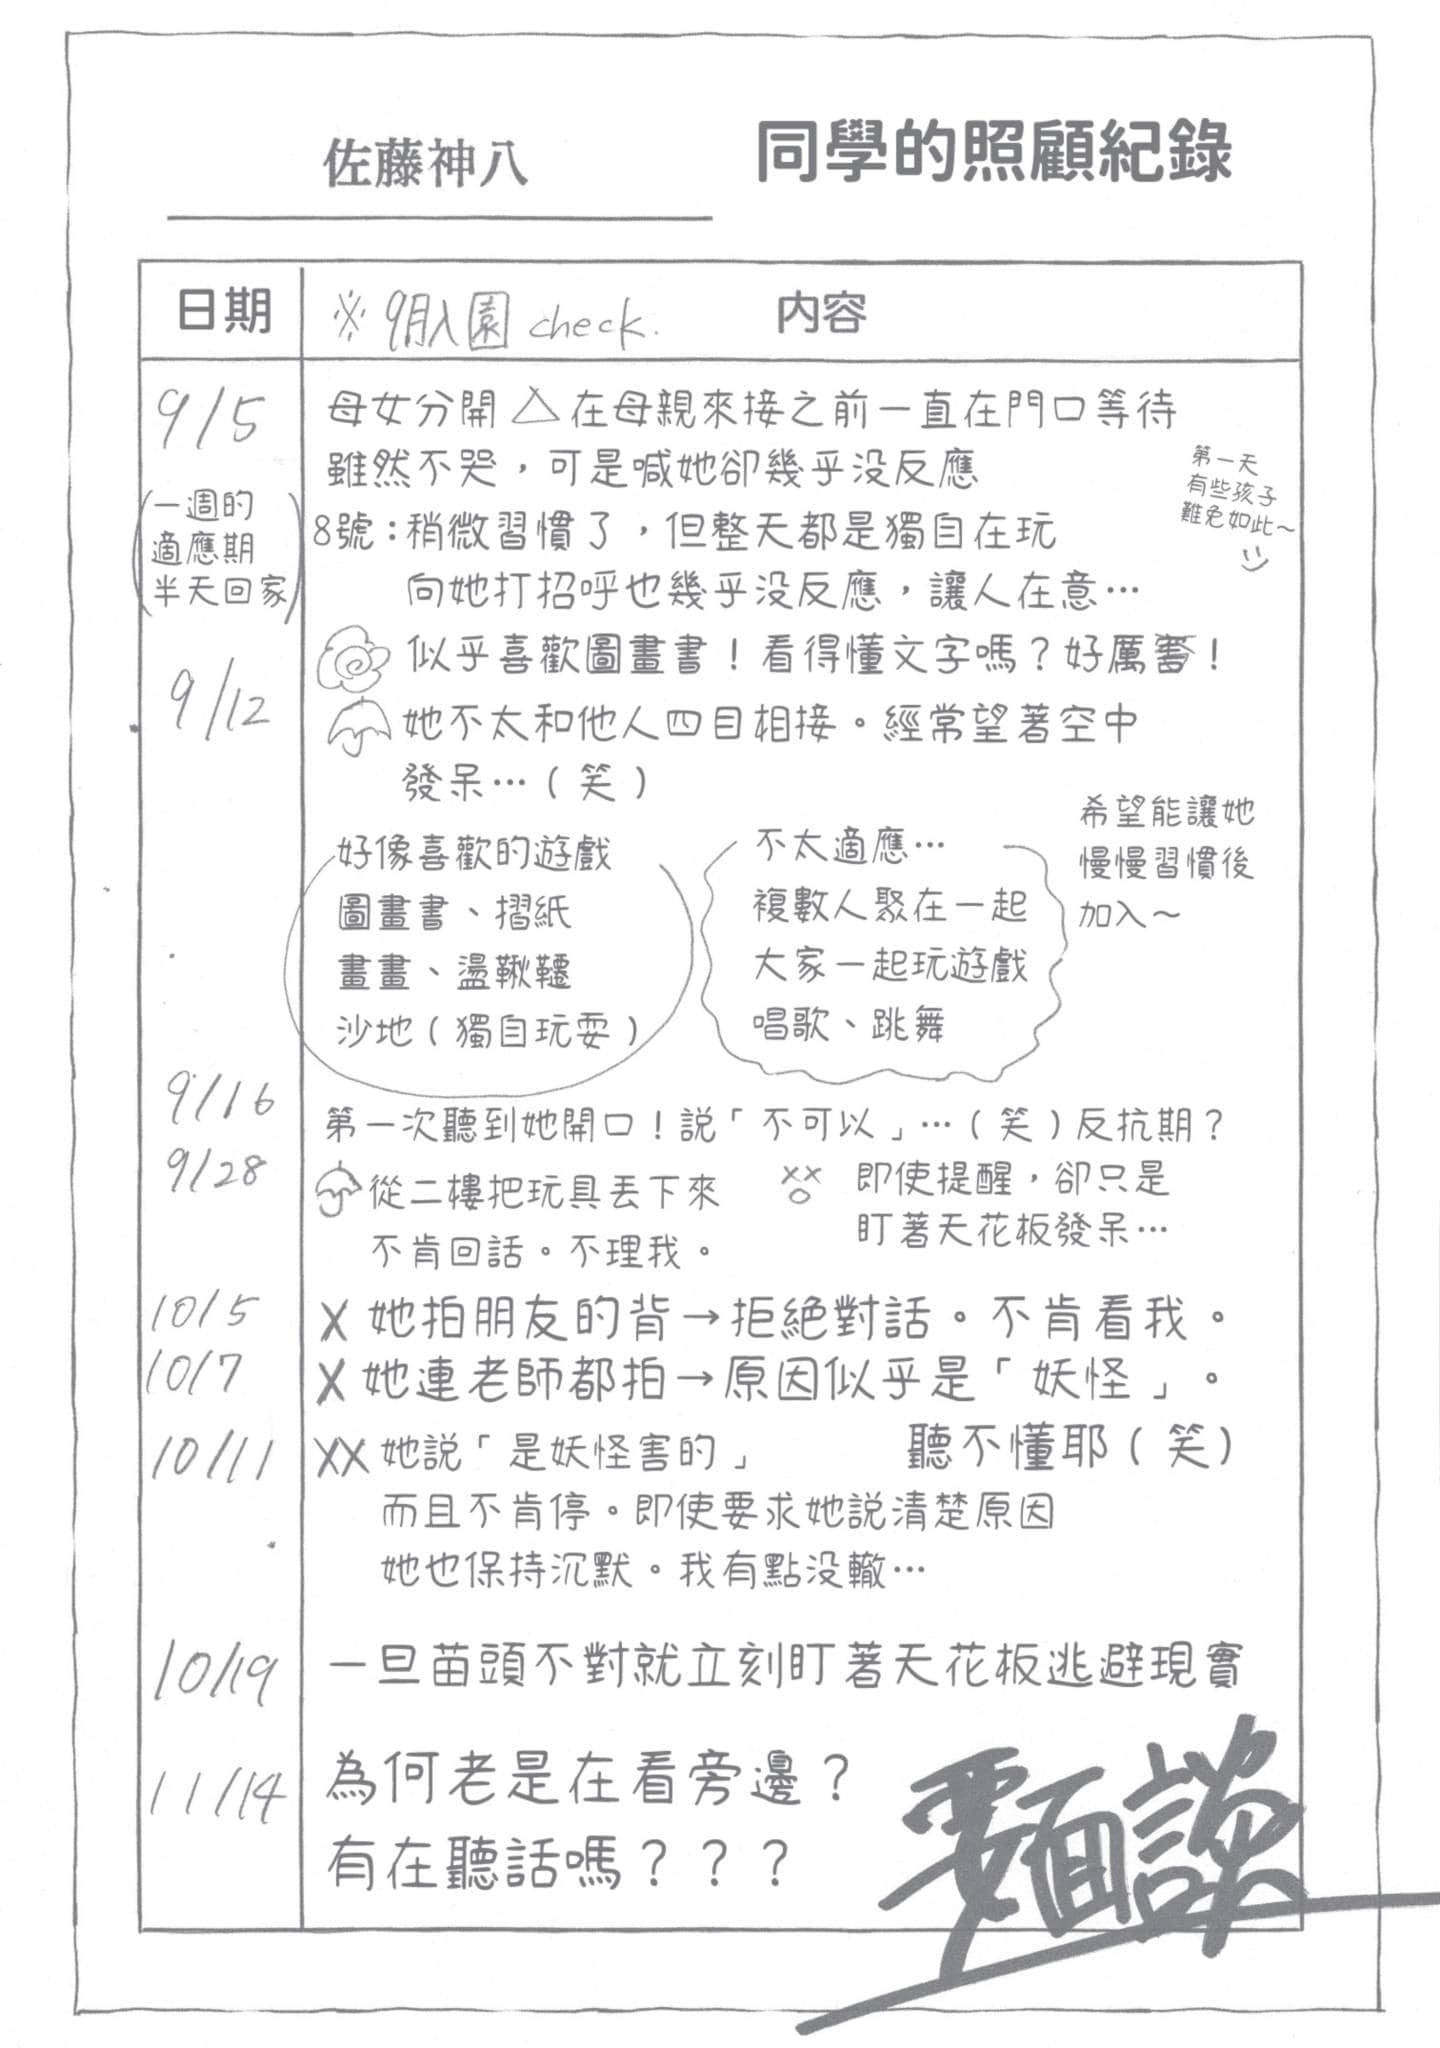 佐藤神八 同學的照顧紀錄
日期 ※9月入園check. 內容
9/5 母女分開△在母親來接之前一直在門口等待
雖然不哭，可是喊她卻幾乎没反應
第一天
有些孩子
難免如此～
（一週的
適應期
半天回家）
8號：稍微習慣了，但整天都是獨自在玩
向她打招呼也幾乎没反應，讓人在意…
9/12 似乎喜歡圖畫書！看得懂文字嗎？好厲害！
她不太和他人四目相接。經常望著空中
發呆…（笑）
好像喜歡的遊戲
圖畫書、摺紙
畫畫、盪鞦韆
沙地（獨自玩耍）
不太適應…
複數人聚在一起
大家一起玩遊戲
唱歌、跳舞
希望能讓她
慢慢習慣後
加入～
9/16 第一次聽到她開口！説「不可以」…（笑）反抗期？
9/28 從二樓把玩具丟下來
不肯回話。不理我。
即使提醒，卻只是
盯著天花板發呆…
10/5 X她拍朋友的背→拒絕對話。不肯看我。
10/7 X她連老師都拍→原因似乎是「妖怪」。
10/11 XX她説「是妖怪害的」 聽不懂耶（笑）
而且不肯停。即使要求她説清楚原因
她也保持沉默。我有點没轍…
10/19 一旦苗頭不對就立刻盯著天花板逃避現實
11/14 為何老是在看旁邊？
有在聽話嗎？？？
要面談